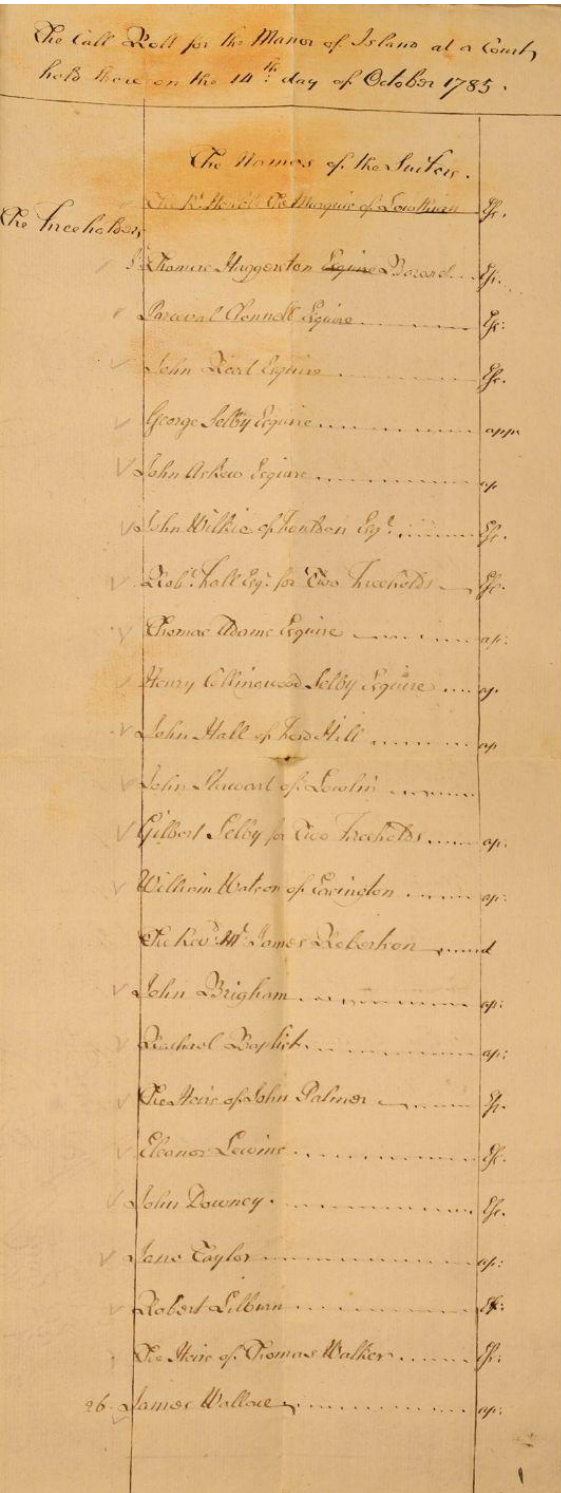 The Call Roll for the Manor of Island at a Court
held there on the 14th day of October 1785.
The Names of the Suitors.
The Freeholders
The Rt. Honble The Marquis of Ess.
Sr Thomas Haggerston Esquire Baronet Ess.
Esquire Ess:
John Reed Esquire Ess.
George Selby Esquire appr
John Askew Esquire ap
John Wilkie of Esqr. Ess.
Robt. Hall Esqr. for Two Freeholds Ess.
Thomas Adams Esquire ap:
Henry Collingwood Selby Esquire ap
John Hall of Hill ap
John Stewart of Lowlin
Gilbert Selby for Two Freeholds ap:
William Watson of ap:
The Revd. Mr. James Robertson
John Brigham ap:
Rachael Baptist ap:
The Heirs of John Palmer Ess.
Eleanor Ess.
John Downey Ess.
Jane Taylor ap:
Robert Lilburn Ess:
The Heirs of Thomas Walker Ess:
26 James Wallace ap: